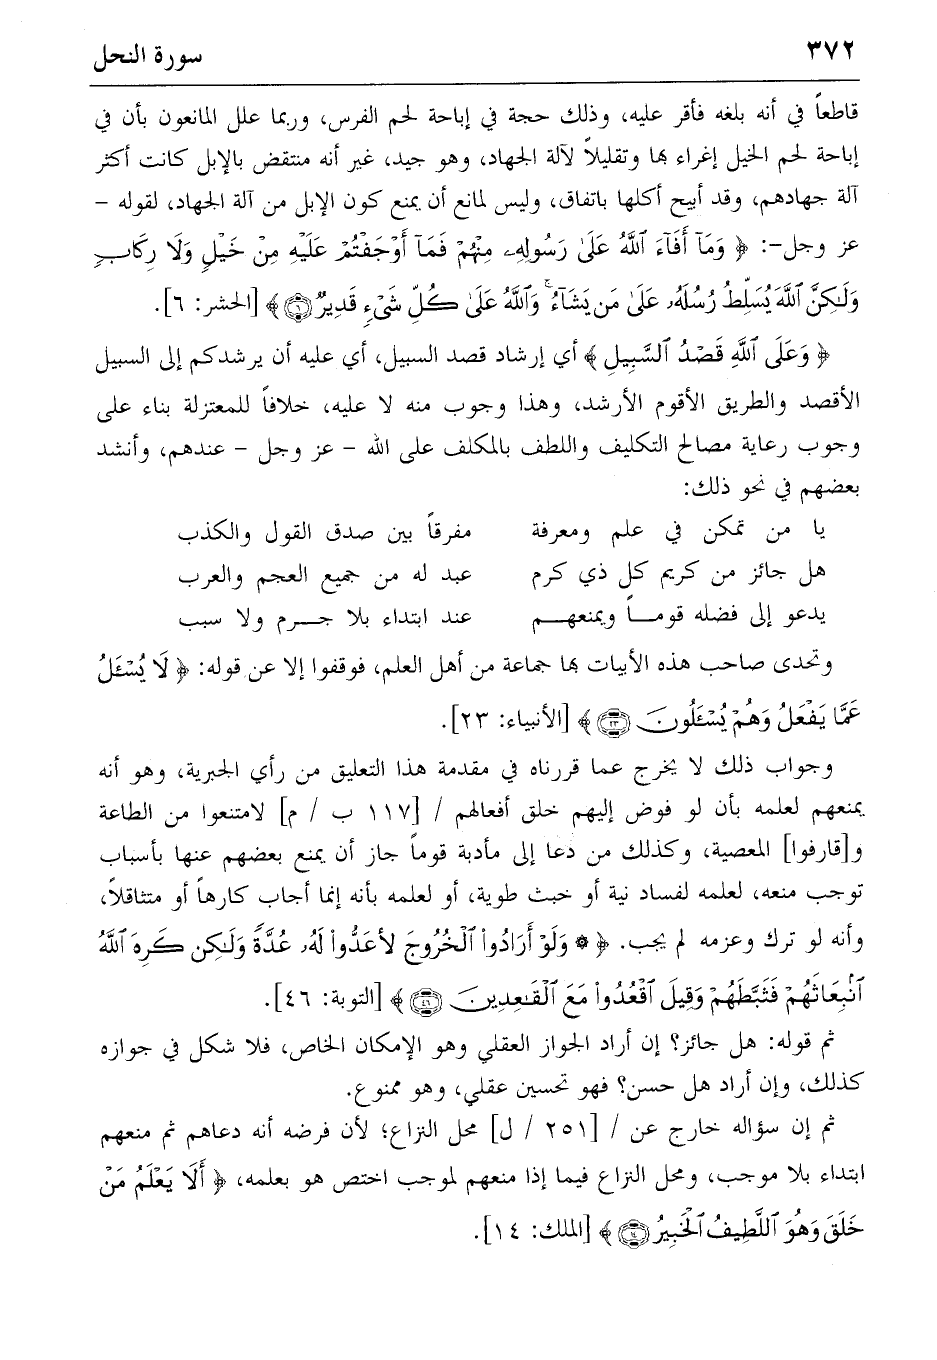 ٣٧٢ سورة النحل
قاطعاً في أنه بلغه فأقر عليه، وذلك حجة في إباحة لحم الفرس، وربما علل المانعون بأن في
إباحة لحم الخيل إغراء بها وتقليلاً لآلة الجهاد، وهو جيد، غير أنه منتقض بالإبل كانت أكثر
آلة جهادهم، وقد أبيح أكلها باتفاق، وليس لمانع أن يمنع كون الإبل من آلة الجهاد، لقوله –
عز وجل–: ﴿ وَمَآ أَفَآءَ ٱللَّهُ عَلَىٰ رَسُولِهِۦ مِنْهُمْ فَمَآ أَوْجَفْتُمْ عَلَيْهِ مِنْ خَيْلٍ وَلَا رِكَابٍ
وَلَـٰكِنَّ ٱللَّهَ يُسَلِّطُ رُسُلَهُۥ عَلَىٰ مَن يَشَآءُ ۚ وَٱللَّهُ عَلَىٰ كُلِّ شَىْءٍ قَدِيرٌ ٦ ﴾ [الحشر: ٦].
﴿ وَعَلَى ٱللَّهِ قَصْدُ ٱلسَّبِيلِ ﴾ أي إرشاد قصد السبيل، أي عليه أن يرشدكم إلى السبيل
الأقصد والطريق الأقوم الأرشد، وهذا وجوب منه لا عليه، خلافاً للمعتزلة بناء على
وجوب رعاية مصالح التكليف واللطف بالمكلف على الله – عز وجل – عندهم، وأنشد
بعضهم في نحو ذلك:
يا من تمكن في علم ومعرفة مفرقاً بين صدق القول والكذب
هل جائز من كريم كل ذي كرم عبد له من جميع العجم والعرب
يدعو إلى فضله قومـــاً ويمنعهـــم عند ابتداء بلا جـــرم ولا سبب
وتحدى صاحب هذه الأبيات بها جماعة من أهل العلم، فوقفوا إلا عن قوله: ﴿ لَا يُسْـَٔلُ
عَمَّا يَفْعَلُ وَهُمْ يُسْـَٔلُونَ ٢٣ ﴾ [الأنبياء: ٢٣].
وجواب ذلك لا يخرج عما قررناه في مقدمة هذا التعليق من رأي الجبرية، وهو أنه
يمنعهم لعلمه بأن لو فوض إليهم خلق أفعالهم / [١١٧ ب / م] لامتنعوا من الطاعة
و[قارفوا] المعصية، وكذلك من دعا إلى مأدبة قوماً جاز أن يمنع بعضهم عنها بأسباب
توجب منعه، لعلمه لفساد نية أو خبث طوية، أو لعلمه بأنه إنما أجاب كارهاً أو متثاقلاً،
وأنه لو ترك وعزمه لم يجب. ﴿ ۞ وَلَوْ أَرَادُوا۟ ٱلْخُرُوجَ لَأَعَدُّوا۟ لَهُۥ عُدَّةً وَلَـٰكِن كَرِهَ ٱللَّهُ
ٱنۢبِعَاثَهُمْ فَثَبَّطَهُمْ وَقِيلَ ٱقْعُدُوا۟ مَعَ ٱلْقَـٰعِدِينَ ٤٦ ﴾ [التوبة: ٤٦].
ثم قوله: هل جائز؟ إن أراد الجواز العقلي وهو الإمكان الخاص، فلا شكل في جوازه
كذلك، وإن أراد هل حسن؟ فهو تحسين عقلي، وهو ممنوع.
ثم إن سؤاله خارج عن / [٢٥١ / ل] محل النزاع؛ لأن فرضه أنه دعاهم ثم منعهم
ابتداء بلا موجب، ومحل النزاع فيما إذا منعهم لموجب اختص هو بعلمه، ﴿ أَلَا يَعْلَمُ مَنْ
خَلَقَ وَهُوَ ٱللَّطِيفُ ٱلْخَبِيرُ ١٤ ﴾ [الملك: ١٤].